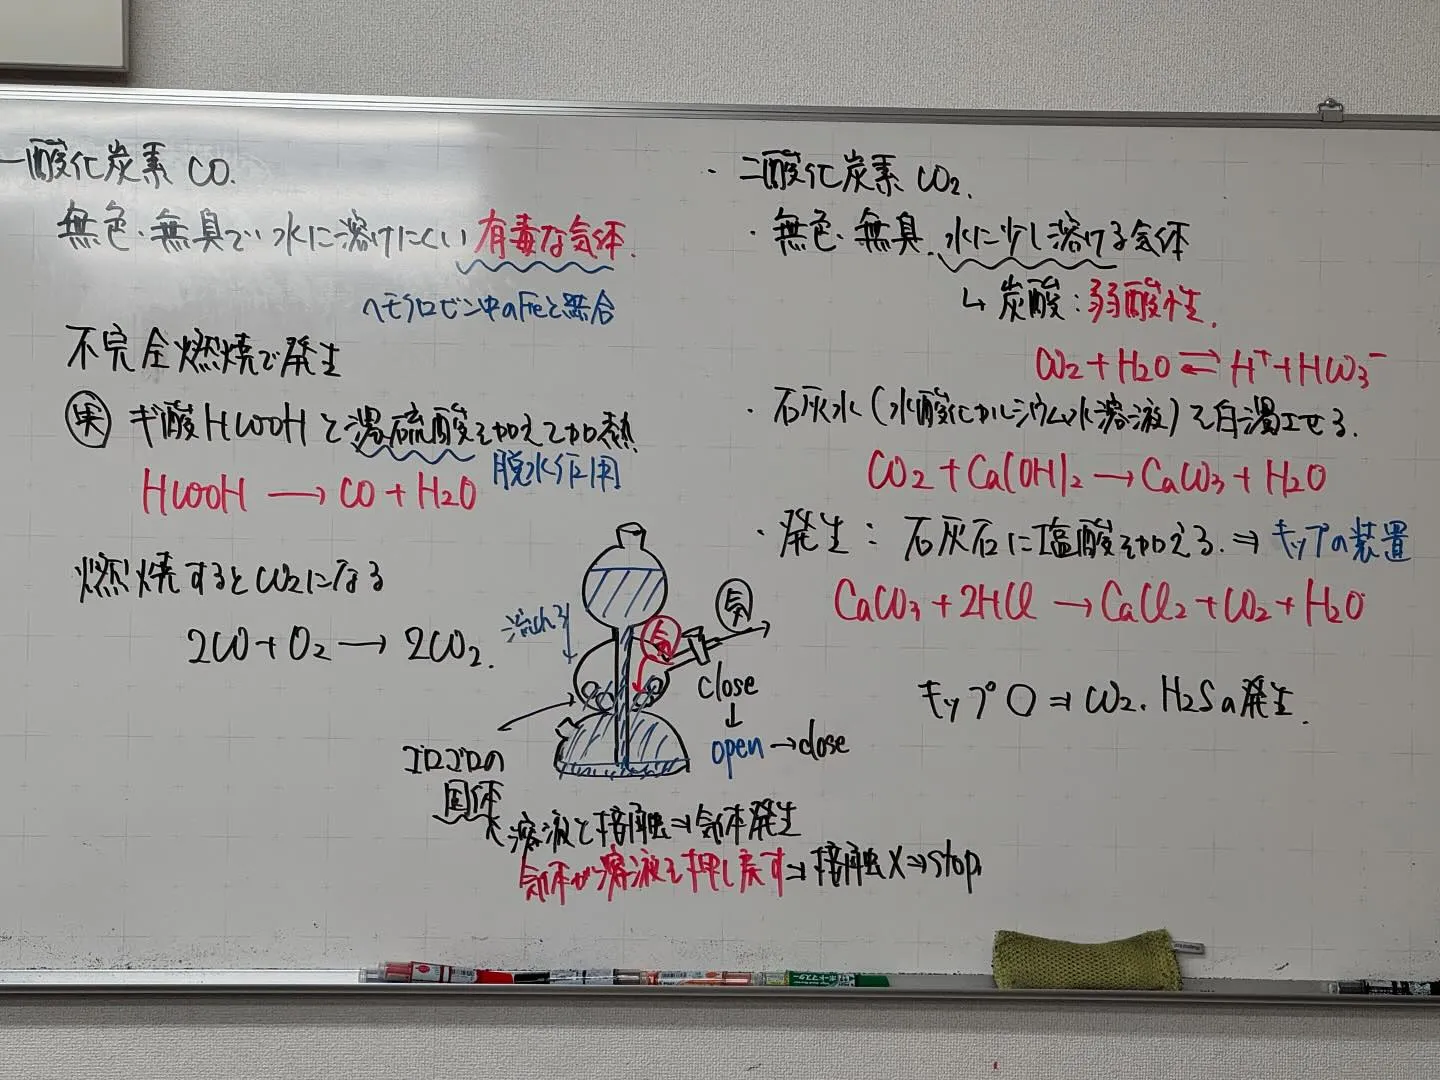 一酸化炭素 CO.
無色・無臭で水に溶けにくい有毒な気体.
ヘモグロビン中のFeと結合
不完全燃焼で発生
実 ギ酸HCOOHと濃硫酸を加えて加熱
脱水作用
HCOOH → CO + H2O
燃焼するとCO2になる
2CO + O2 → 2CO2.
流れる↓
気
気
close
↓
open → close
ゴロゴロの
固体
溶液と接触⇒気体発生
気体が溶液を押し戻す⇒接触X⇒stop
・二酸化炭素 CO2.
・無色・無臭.水に少し溶ける気体
↳ 炭酸：弱酸性.
CO2 + H2O ⇄ H+ + HCO3-
・石灰水(水酸化カルシウム水溶液)を白濁させる.
CO2 + Ca(OH)2 → CaCO3 + H2O
・発生：石灰石に塩酸を加える.⇒キップの装置
CaCO3 + 2HCl → CaCl2 + CO2 + H2O
キップ〇⇒CO2.H2Sの発生.